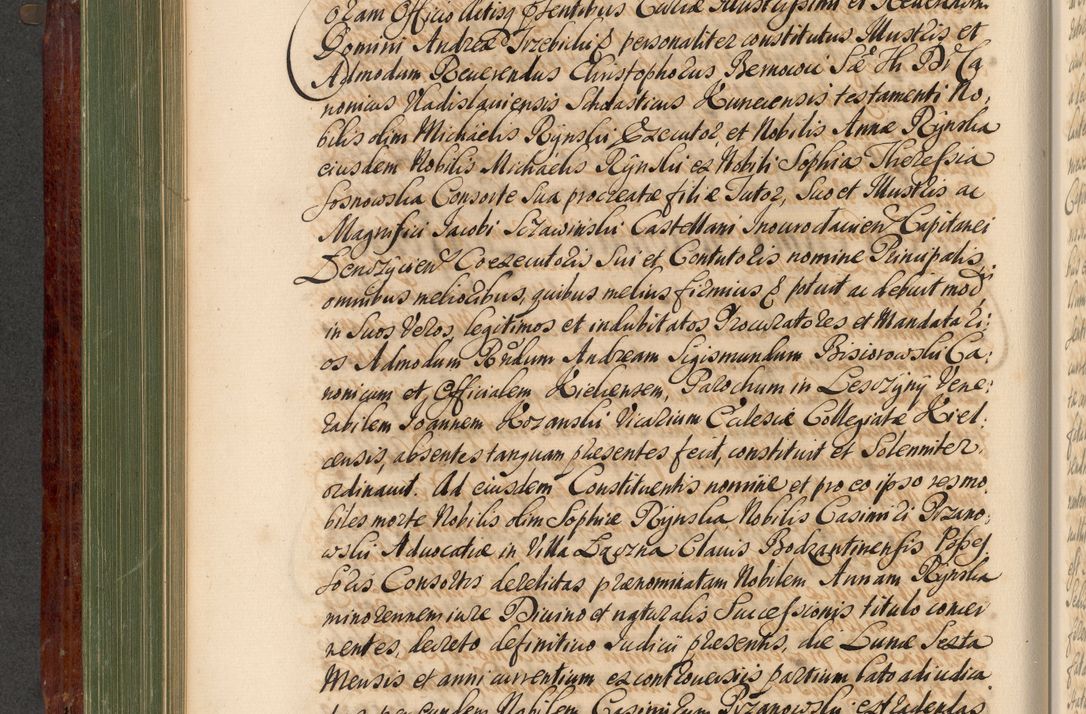 oram Officio Actisq psentibus Curiæ Illustrissimi et Reverendi
Domini Andreæ Trzebicki personaliter constitutus Illustris et
Admodum Reverendus Christophorus Bernowic Sæ Th Dr Ca
nonicus Vladislaviensis Scholasticus Kunecensis testamenti No:
bilis olim Michaelis Rÿnski Executor, et Nobilis Annæ Rÿnska
eiusdem Nobilis Michaelis Rÿnski ex Nobili Sophia Theressia
Sosnowska Consorte sua procreatæ filiæ Tutor, Suo et Illustris ac
Magnifici Jacobi Sczawinski Castellani Inowrodacien Capitanei
Lenczÿcien Coexecutoris Sui et Contutoris nomine Principalis
omnibus melioribus, quibus melius firmius q potuit ac debuit mod
in Suos Veros, legitimos et indubitatos Procuratores et Mandatari:
os Admodum Rndum Andream Sigismundum Bisiorowski Ca:
nonicum et Officialem Kielcensem, Parochum in Lesczÿnÿ Vene:
rabilem Joannem Kozanski Vicarium Ecclesiæ Collegiatæ Kiel:
censis, absentes tanquam præsentes fecit, constituit et Solenniter
ordinavit. Ad eiusdem Constituentis nomine et pro eo ipso res mo,
biles morte Nobilis olim Sophiæ Rÿnska, Nobilis Casimiri Przano:
wski Advocatiæ in Villa Laczna Clavis Bodzantinensis Posses
soris Consortis derelictas prænominatam Nobilem Annam Rÿnska
minorennem iure Divino et naturalis Successionis titulo concer
nentes, decreto definitivo Judicii præsentis, die Lunæ Sexta
Mensis et anni currentium ex controversiis partium lato adiudica
tas per eundem Nobilem Casimirum Przanowski extradendas